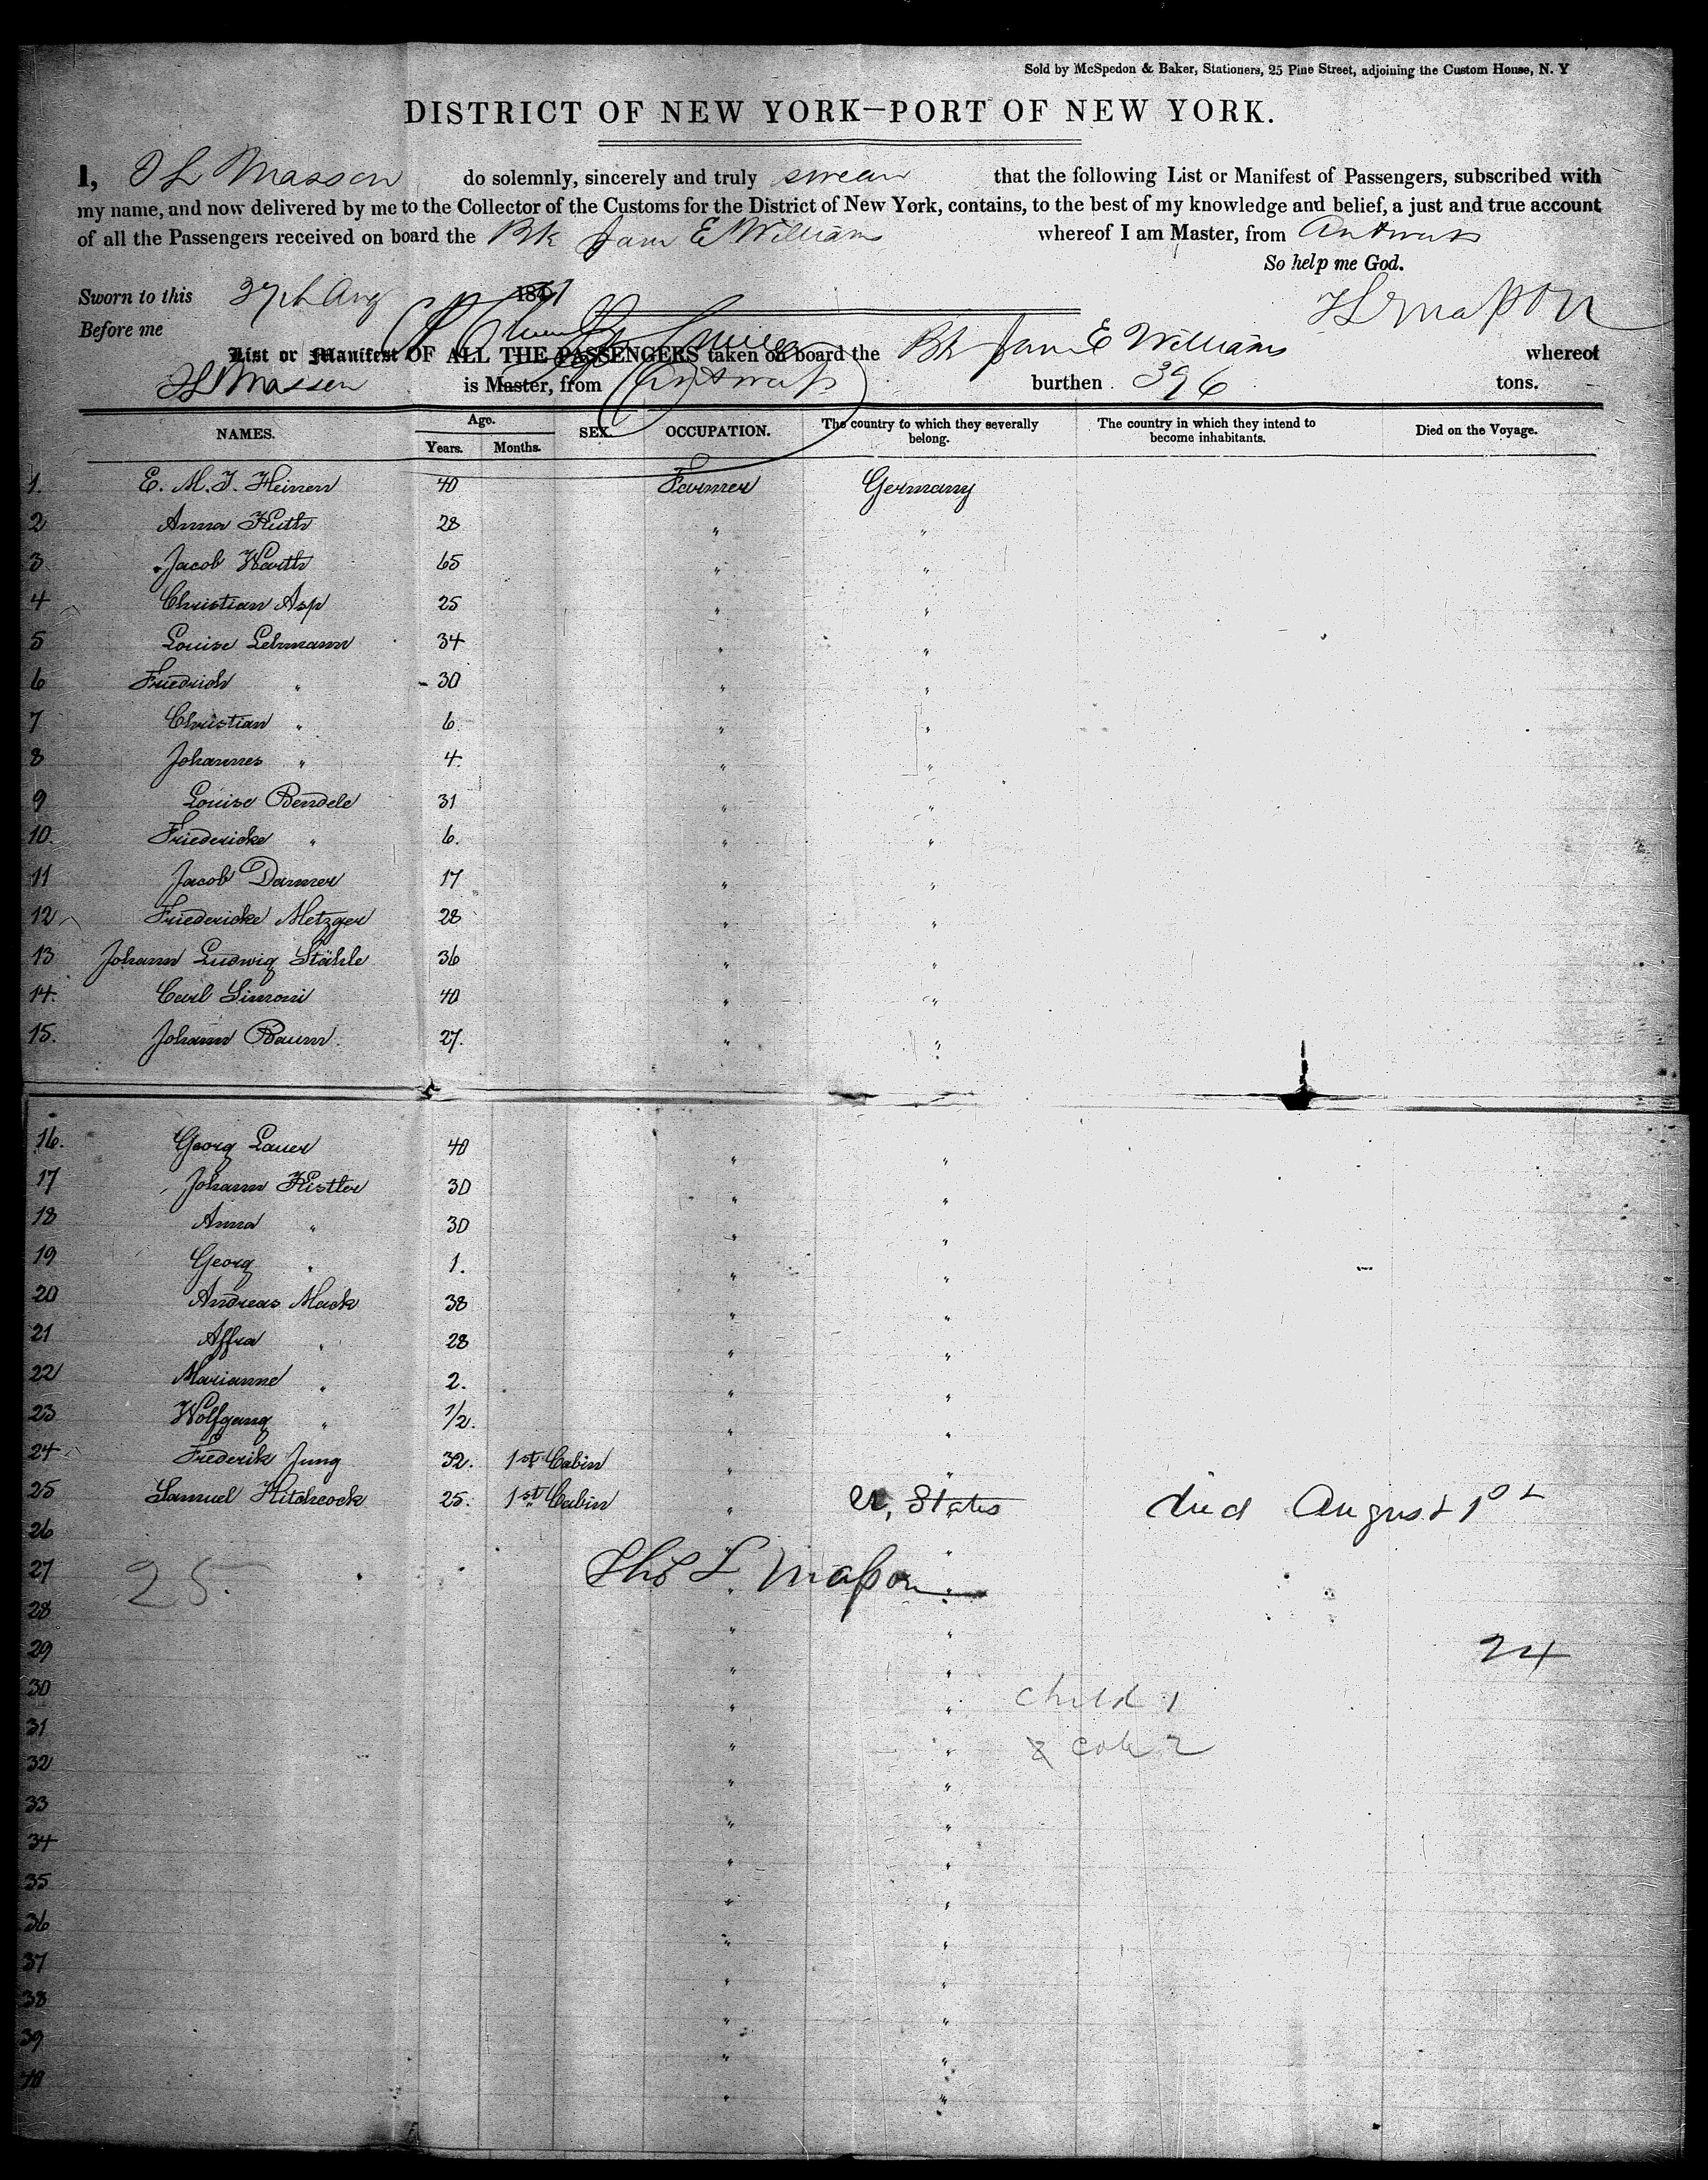 Sold by McSpedon & Baker, Stationers, 25 Pine Street, adjoining the Custom House, N. Y
DISTRICT OF NEW YORK—PORT OF NEW YORK.
I, T L Masson do solemnly, sincerely and truly swear that the following List or Manifest of Passengers, subscribed with
my name, and now delivered by me to the Collector of the Customs for the District of New York, contains, to the best of my knowledge and belief, a just and true account
of all the Passengers received on board the Bk Jane E Williams whereof I am Master, from Antwerp
So help me God.
Sworn to this 27th Aug 1861
T L Masson
Before me
List or Manifest OF ALL THE PASSENGERS taken on board the Bk Jane E Williams whereof
T L Masson is Master, from Antwerp burthen 396 tons.
NAMES. Age. Years. Months. SEX. OCCUPATION. The country to which they severally belong. The country in which they intend to become inhabitants. Died on the Voyage.
1. E. M. J. Heinen 40 Farmer Germany
2 Anna Huth 28 " "
3 Jacob Warth 65 " "
4 Christian Asp 25 " "
5 Louise Lehmann 34 " "
6 Friedrich " 30 " "
7 Christian " 6 " "
8 Johannes " 4. " "
9 Louise Bendele 31 " "
10. Friedericke " 6. " "
11 Jacob Danner 17 " "
12 Friedericke Metzger 28 " "
13 Johann Ludwig Stähle 36 " "
14. Carl Simoni 40 " "
15. Johann Baum 27. " "
16. Georg Lauer 40 " "
17 Johann Kistler 30 " "
18 Anna " 30 " "
19 Georg " 1. " "
20 Andreas Mack 38 " "
21 Affra " 28 " "
22 Marianne " 2. " "
23 Wolfgang " 1/2. " "
24 Frederik Jung 32. 1st Cabin " "
25 Samuel Hitchcock 25. 1st Cabin " U, States died August 1st
26 " "
27 25. Thos L Masson " "
28 " "
29 " " 24
30 " " child 1
31 " " 2
32 " "
33 " "
34 " "
35 " "
36 " "
37 " "
38 " "
39 " "
40 " "